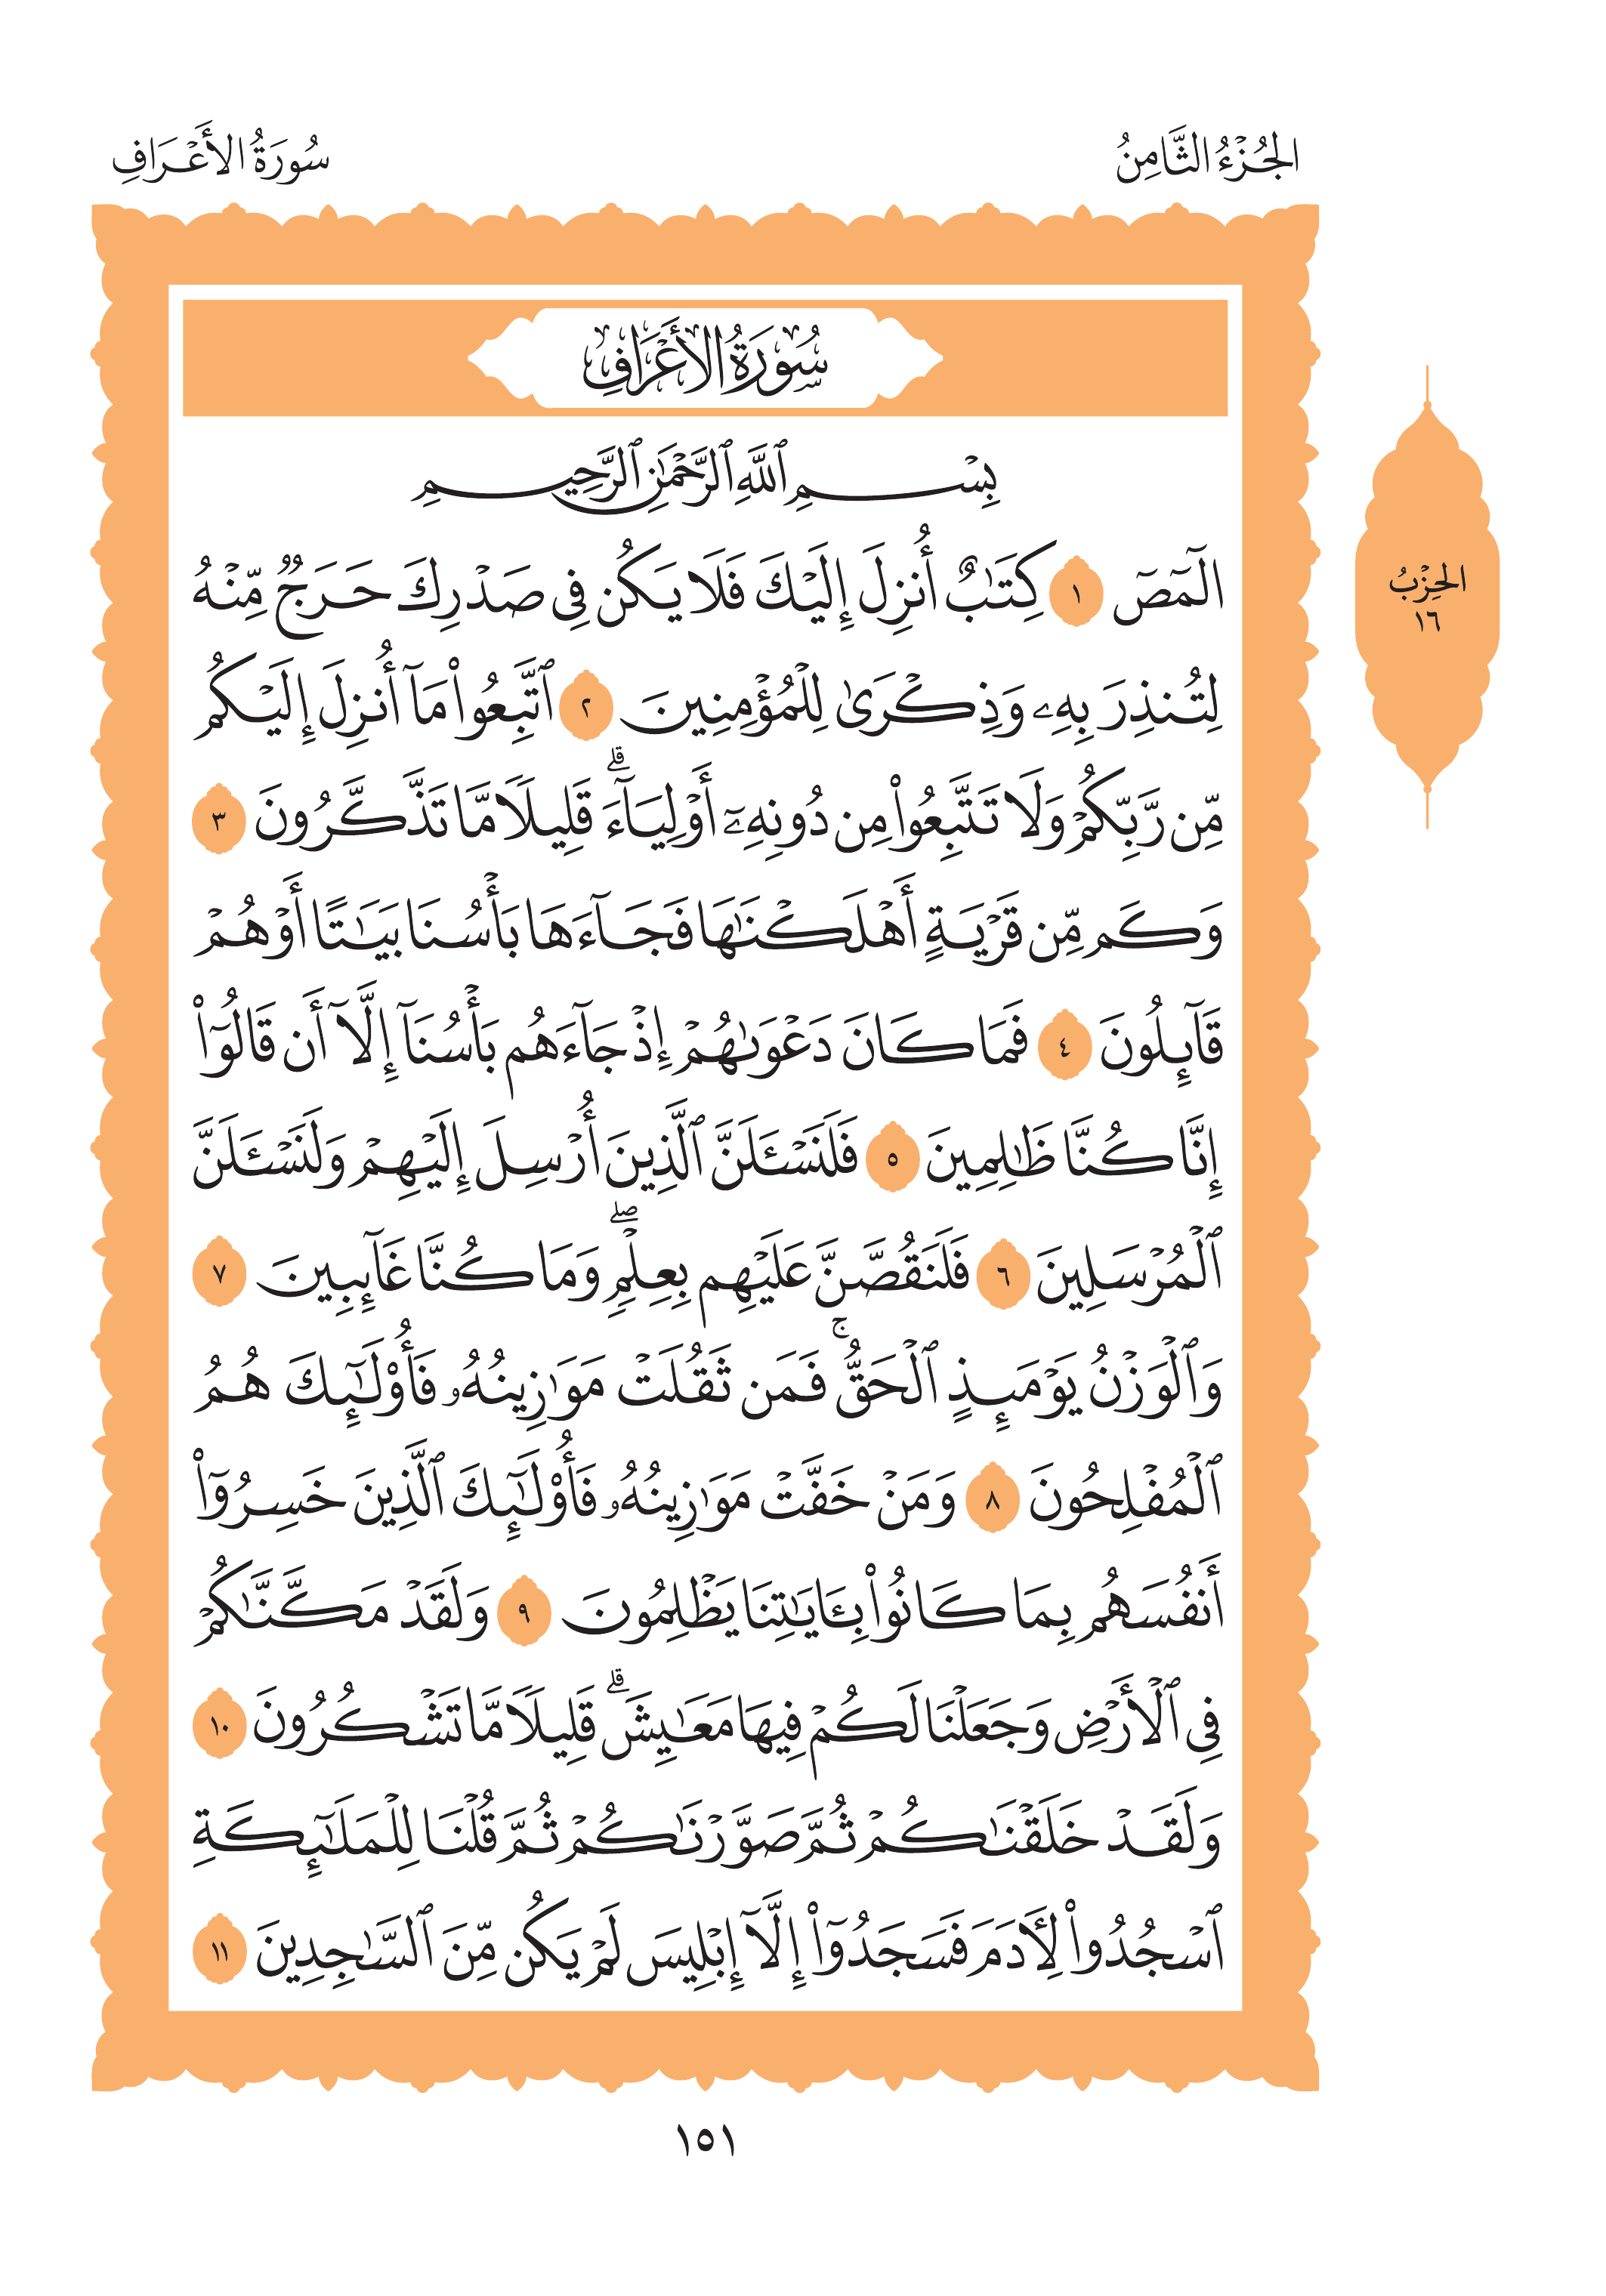 الجُزْءُ الثَّامِنُ
سُورَةُ الأَعْرَافِ
سُورَةُ الأَعْرَافِ
بِسْمِ ٱللَّهِ ٱلرَّحْمَٰنِ ٱلرَّحِيمِ
الٓمٓصٓ ١ كِتَٰبٌ أُنزِلَ إِلَيْكَ فَلَا يَكُن فِى صَدْرِكَ حَرَجٌ مِّنْهُ
لِتُنذِرَ بِهِۦ وَذِكْرَىٰ لِلْمُؤْمِنِينَ ٢ ٱتَّبِعُوا۟ مَآ أُنزِلَ إِلَيْكُم
مِّن رَّبِّكُمْ وَلَا تَتَّبِعُوا۟ مِن دُونِهِۦٓ أَوْلِيَآءَ ۗ قَلِيلًا مَّا تَذَكَّرُونَ ٣
وَكَم مِّن قَرْيَةٍ أَهْلَكْنَٰهَا فَجَآءَهَا بَأْسُنَا بَيَٰتًا أَوْ هُمْ
قَآئِلُونَ ٤ فَمَا كَانَ دَعْوَىٰهُمْ إِذْ جَآءَهُم بَأْسُنَآ إِلَّآ أَن قَالُوٓا۟
إِنَّا كُنَّا ظَٰلِمِينَ ٥ فَلَنَسْـَٔلَنَّ ٱلَّذِينَ أُرْسِلَ إِلَيْهِمْ وَلَنَسْـَٔلَنَّ
ٱلْمُرْسَلِينَ ٦ فَلَنَقُصَّنَّ عَلَيْهِم بِعِلْمٍ ۖ وَمَا كُنَّا غَآئِبِينَ ٧
وَٱلْوَزْنُ يَوْمَئِذٍ ٱلْحَقُّ ۚ فَمَن ثَقُلَتْ مَوَٰزِينُهُۥ فَأُو۟لَٰٓئِكَ هُمُ
ٱلْمُفْلِحُونَ ٨ وَمَنْ خَفَّتْ مَوَٰزِينُهُۥ فَأُو۟لَٰٓئِكَ ٱلَّذِينَ خَسِرُوٓا۟
أَنفُسَهُم بِمَا كَانُوا۟ بِـَٔايَٰتِنَا يَظْلِمُونَ ٩ وَلَقَدْ مَكَّنَّٰكُمْ
فِى ٱلْأَرْضِ وَجَعَلْنَا لَكُمْ فِيهَا مَعَٰيِشَ ۗ قَلِيلًا مَّا تَشْكُرُونَ ١٠
وَلَقَدْ خَلَقْنَٰكُمْ ثُمَّ صَوَّرْنَٰكُمْ ثُمَّ قُلْنَا لِلْمَلَٰٓئِكَةِ
ٱسْجُدُوا۟ لِـَٔادَمَ فَسَجَدُوٓا۟ إِلَّآ إِبْلِيسَ لَمْ يَكُن مِّنَ ٱلسَّٰجِدِينَ ١١
الحِزْبُ
١٦
١٥١